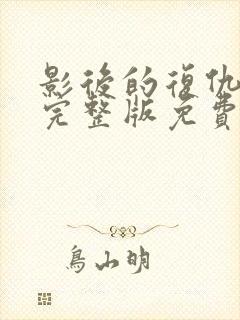 影後的復仇
完整版免費
鳥山明